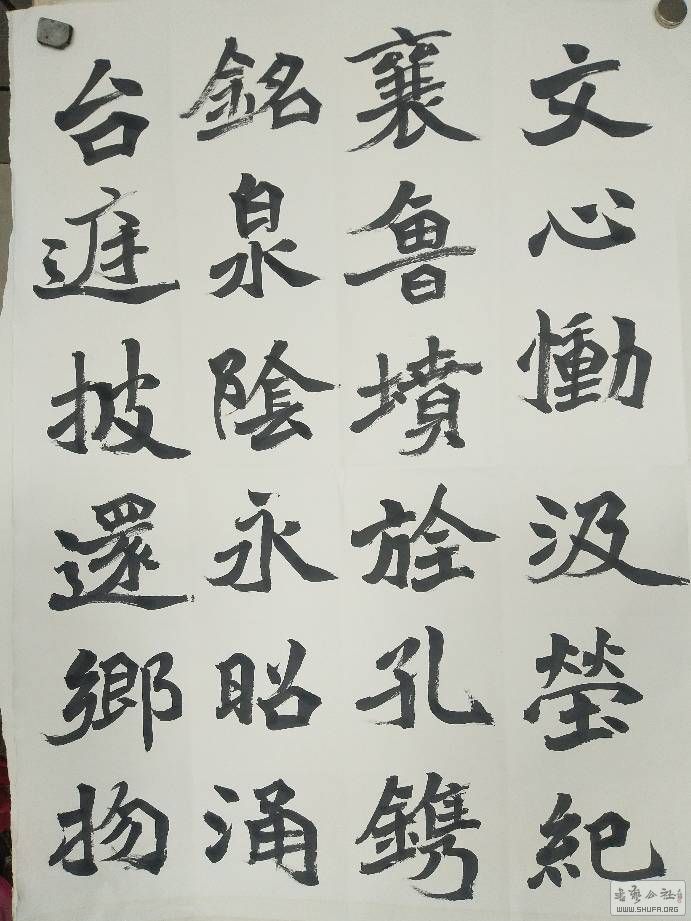 文心慟汲塋紀
襄魯墳旌孔鐫
銘泉陰永昭涌
台披還鄉物
书艺公社
WWW.SHUFA.ORG